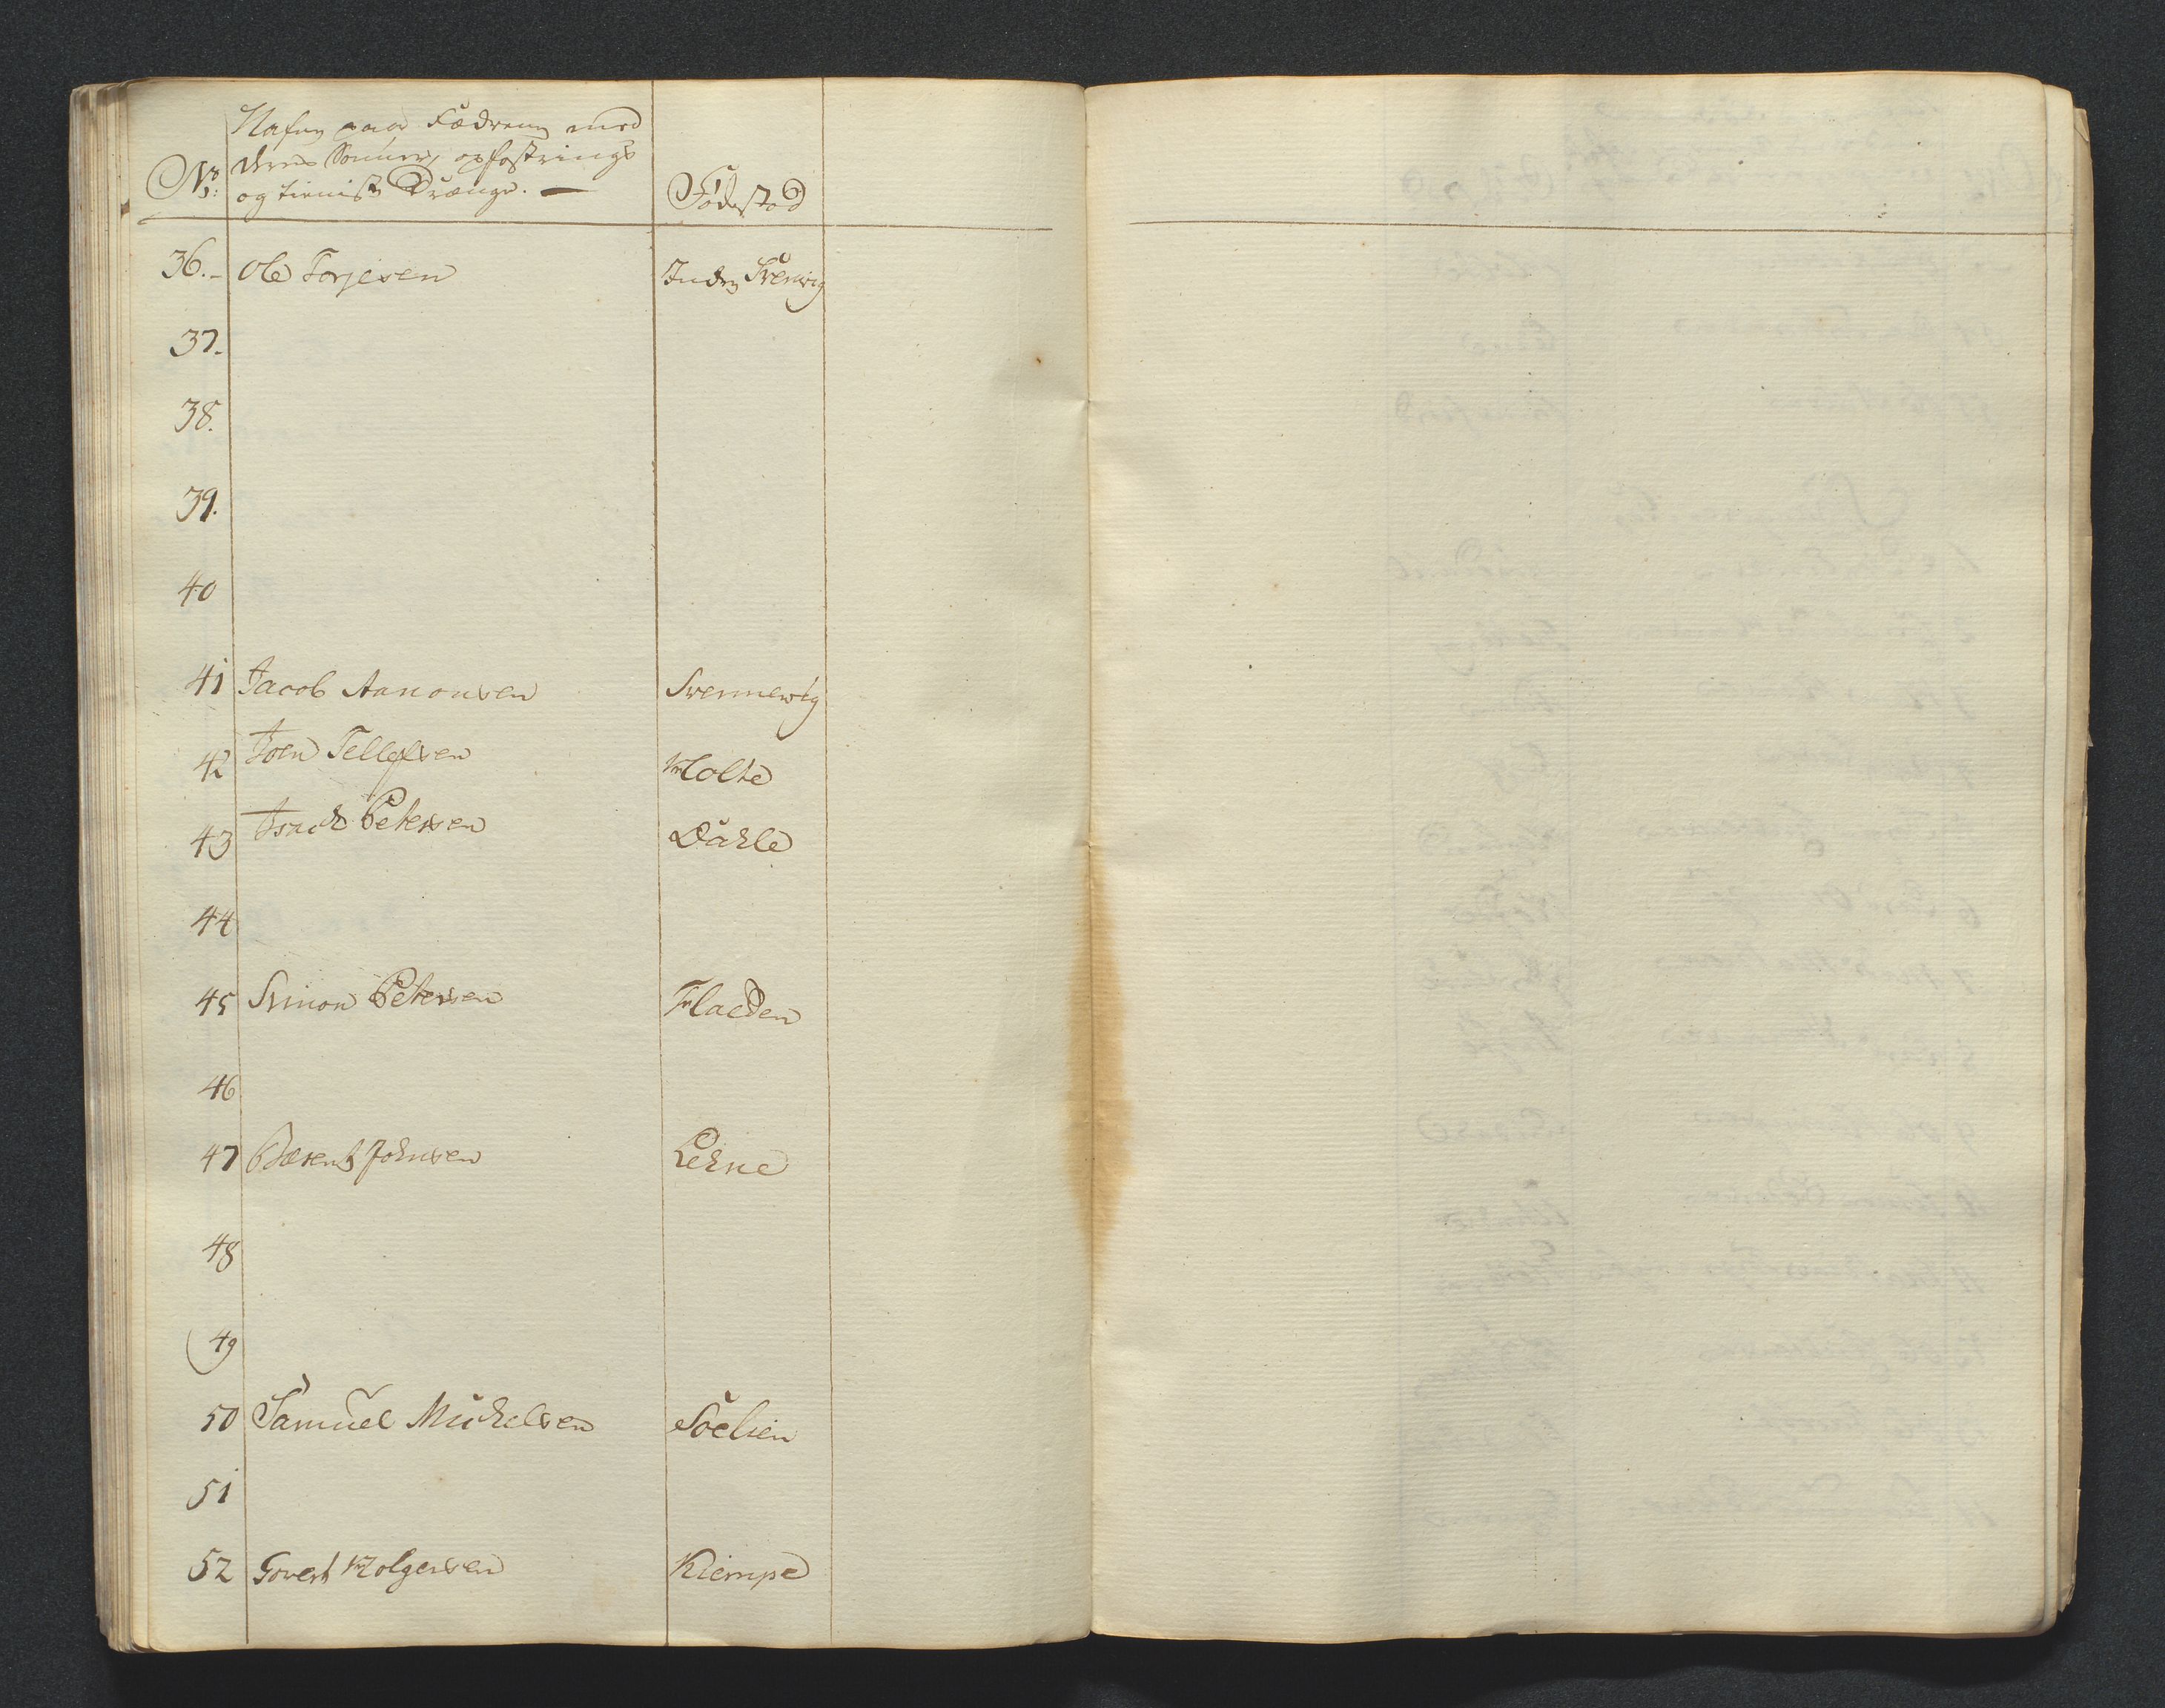 No: Nafn paa Fædrene med
deres Sønner, opfostrings
og tieniste Drænge. —
Fødestæd
36.- Ole Torjesen Inden Svenvig
37.
38.
39.
40
41 Jacob Aanonsen Svennevig
42 Joen Tellefsen Holte
43 Isack Petersen Dahle
44
45 Simon Petersen Flaeden
46
47 Bærent Johnsen Lehne
48
49
50 Samuel Mickelsen
51
52 Govert Holgersen Kiempe